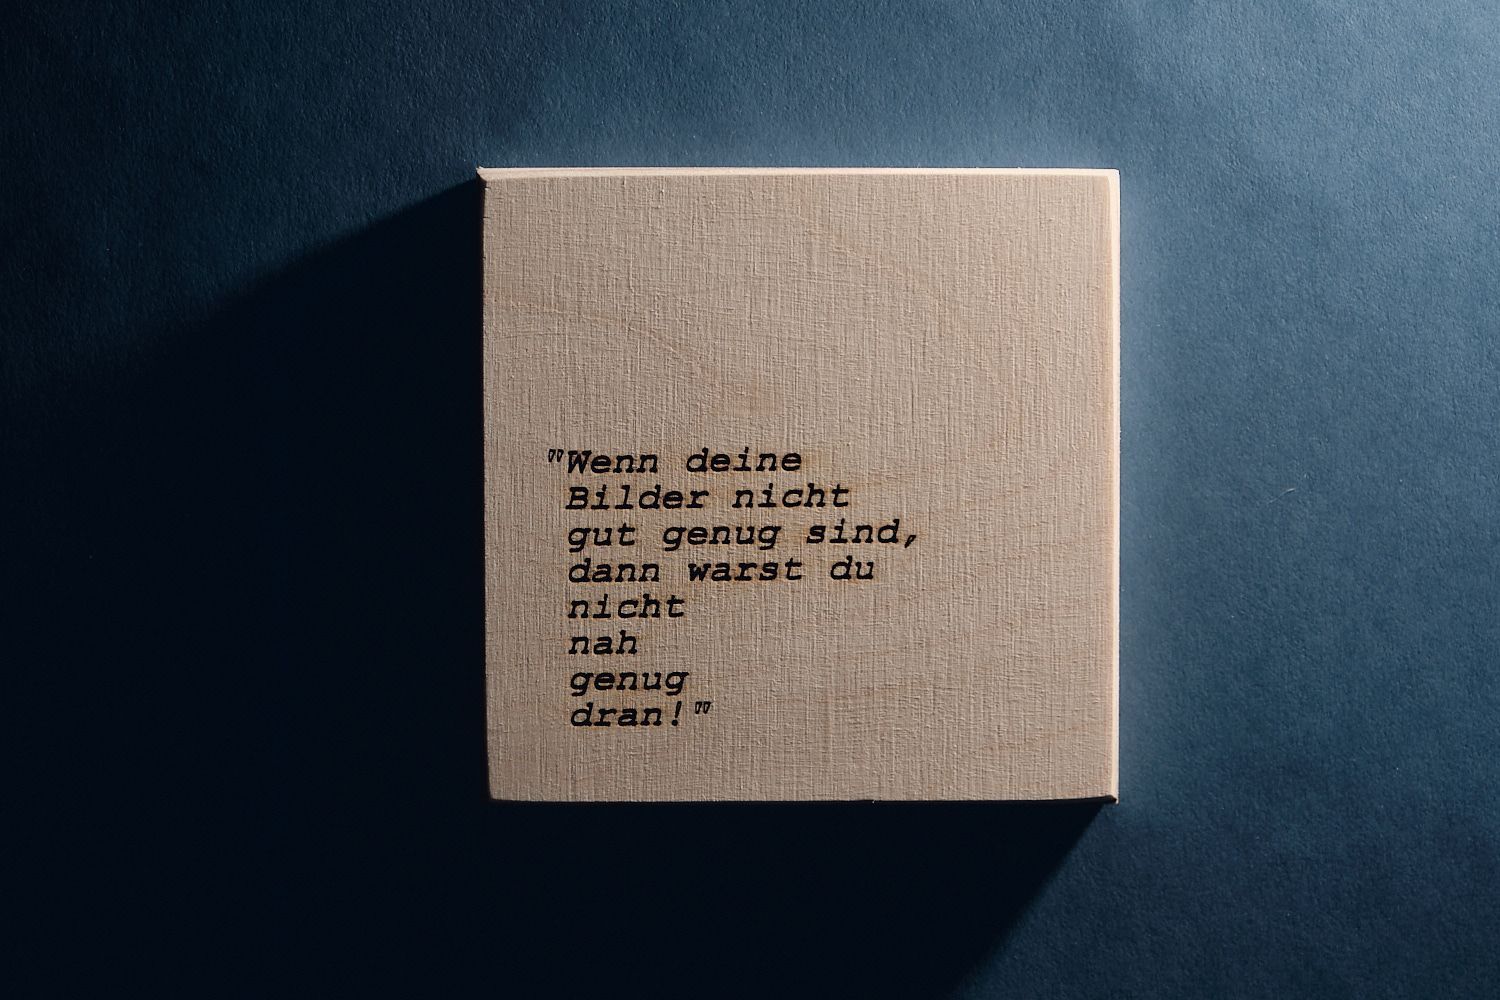 "Wenn deine
Bilder nicht
gut genug sind,
dann warst du
nicht
nah
genug
dran!"